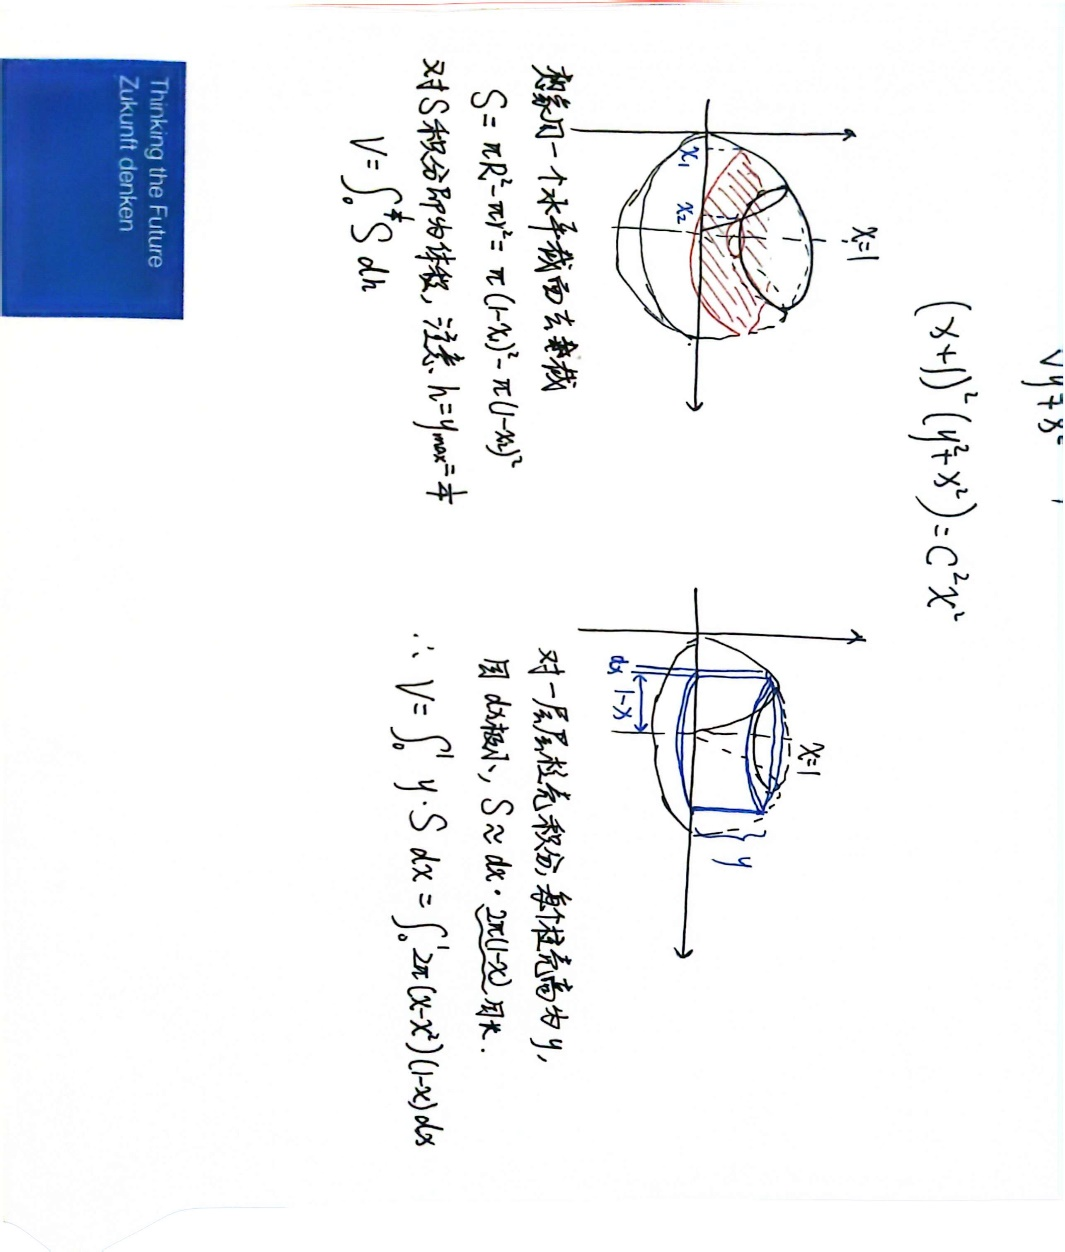 (x+1)²(y²+x²)=C²x²
x=1
x₁
x₂
想象用一个水平截面去截
S=πR²-πr²=π(1-x₁)²-π(1-x₂)²
对S积分即为体积,注意h=y_max=1/4
V=∫₀^(1/4) S dh
x=1
y
dx
1-x
对一层层柱壳积分,每个柱壳高为y,
因dx极小,S≈dx·2π(1-x)周长.
∴V=∫₀¹ y·S dx=∫₀¹ 2π(x-x²)(1-x)dx
Thinking the Future
Zukunft denken